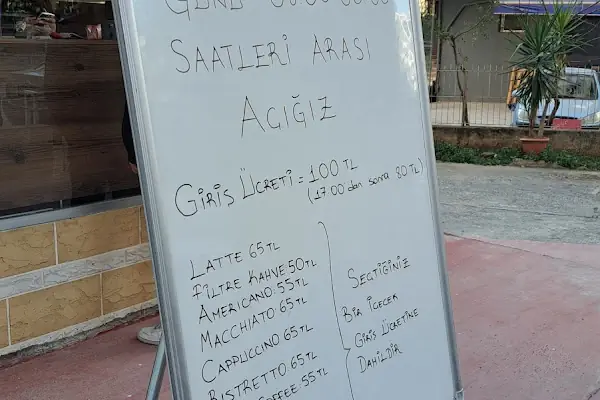 SAATLERİ ARASI
AÇIĞIZ
GİRİS ÜCRETİ = 100 TL
(17.00 dan sonra 80 TL)
LATTE 65TL
FİLTRE KAHVE 50TL
AMERICANO 55TL
MACCHIATO 65TL
CAPPUCCINO 65TL
RISTRETTO 65TL
COFFEE 55TL
SEÇTİĞİNİZ
BİR İÇECEK
GİRİS ÜCRETİNE
DAHİLDİR